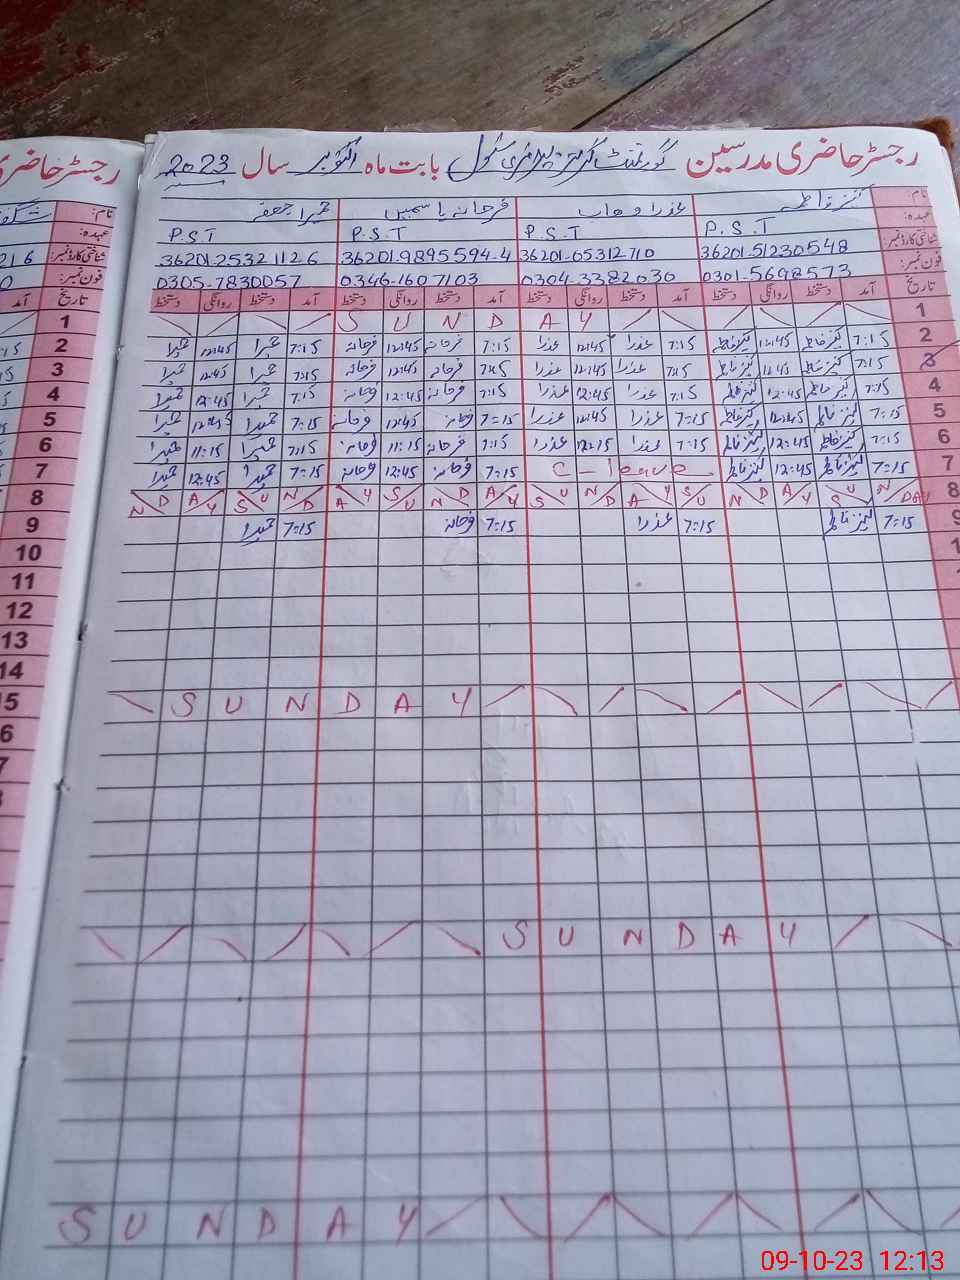 رجسٹر حاضری مدرسین گورنمنٹ گرلز پرائمری سکول بابت ماہ اکتوبر سال 2023
رجسٹر حاضری
نام: کنیز فاطمہ عذرا وہاب فرحانہ یاسمین حمیرا جعفر
عہدہ: P.S.T P.S.T P.S.T P.S.T
شناختی کارڈ نمبر: 36201-51230548 36201-65312710 36201-9895594-4 36201-25321126
216
فون نمبر: 0301-5698573 0304-3382030 0346-1607103 0305-7830057
تاریخ آمد دستخط روانگی دستخط آمد دستخط روانگی دستخط آمد دستخط روانگی دستخط آمد دستخط روانگی دستخط تاریخ آمد
1 S U N D A Y 1
2 7:15 کنیز فاطمہ 12:45 کنیز فاطمہ 7:15 عذرا 12:45 عذرا 7:15 فرحانہ 12:45 فرحانہ 7:15 حمیرا 12:45 حمیرا 2
3 7:15 کنیز فاطمہ 12:45 کنیز فاطمہ 7:15 عذرا 12:45 عذرا 7:15 فرحانہ 12:45 فرحانہ 7:15 حمیرا 12:45 حمیرا 3
4 7:15 کنیز فاطمہ 12:45 کنیز فاطمہ 7:15 عذرا 12:45 عذرا 7:15 فرحانہ 12:45 فرحانہ 7:15 حمیرا 12:45 حمیرا 4
5 7:15 کنیز فاطمہ 12:45 کنیز فاطمہ 7:15 عذرا 12:45 عذرا 7:15 فرحانہ 12:45 فرحانہ 7:15 حمیرا 12:45 حمیرا 5
6 7:15 کنیز فاطمہ 12:45 کنیز فاطمہ 7:15 عذرا 12:15 عذرا 7:15 فرحانہ 11:15 فرحانہ 7:15 حمیرا 11:15 حمیرا 6
7 7:15 کنیز فاطمہ 12:45 کنیز فاطمہ C-leave 7:15 فرحانہ 12:45 فرحانہ 7:15 حمیرا 12:45 حمیرا 7
8 N D A Y S U N D A Y S U N D A Y S U N D A Y 8
9 7:15 کنیز فاطمہ 7:15 عذرا 7:15 فرحانہ 7:15 حمیرا 9
10
11
12
13
14
15 S U N D A Y
S U N D A Y
S U N D A Y
09-10-23 12:13